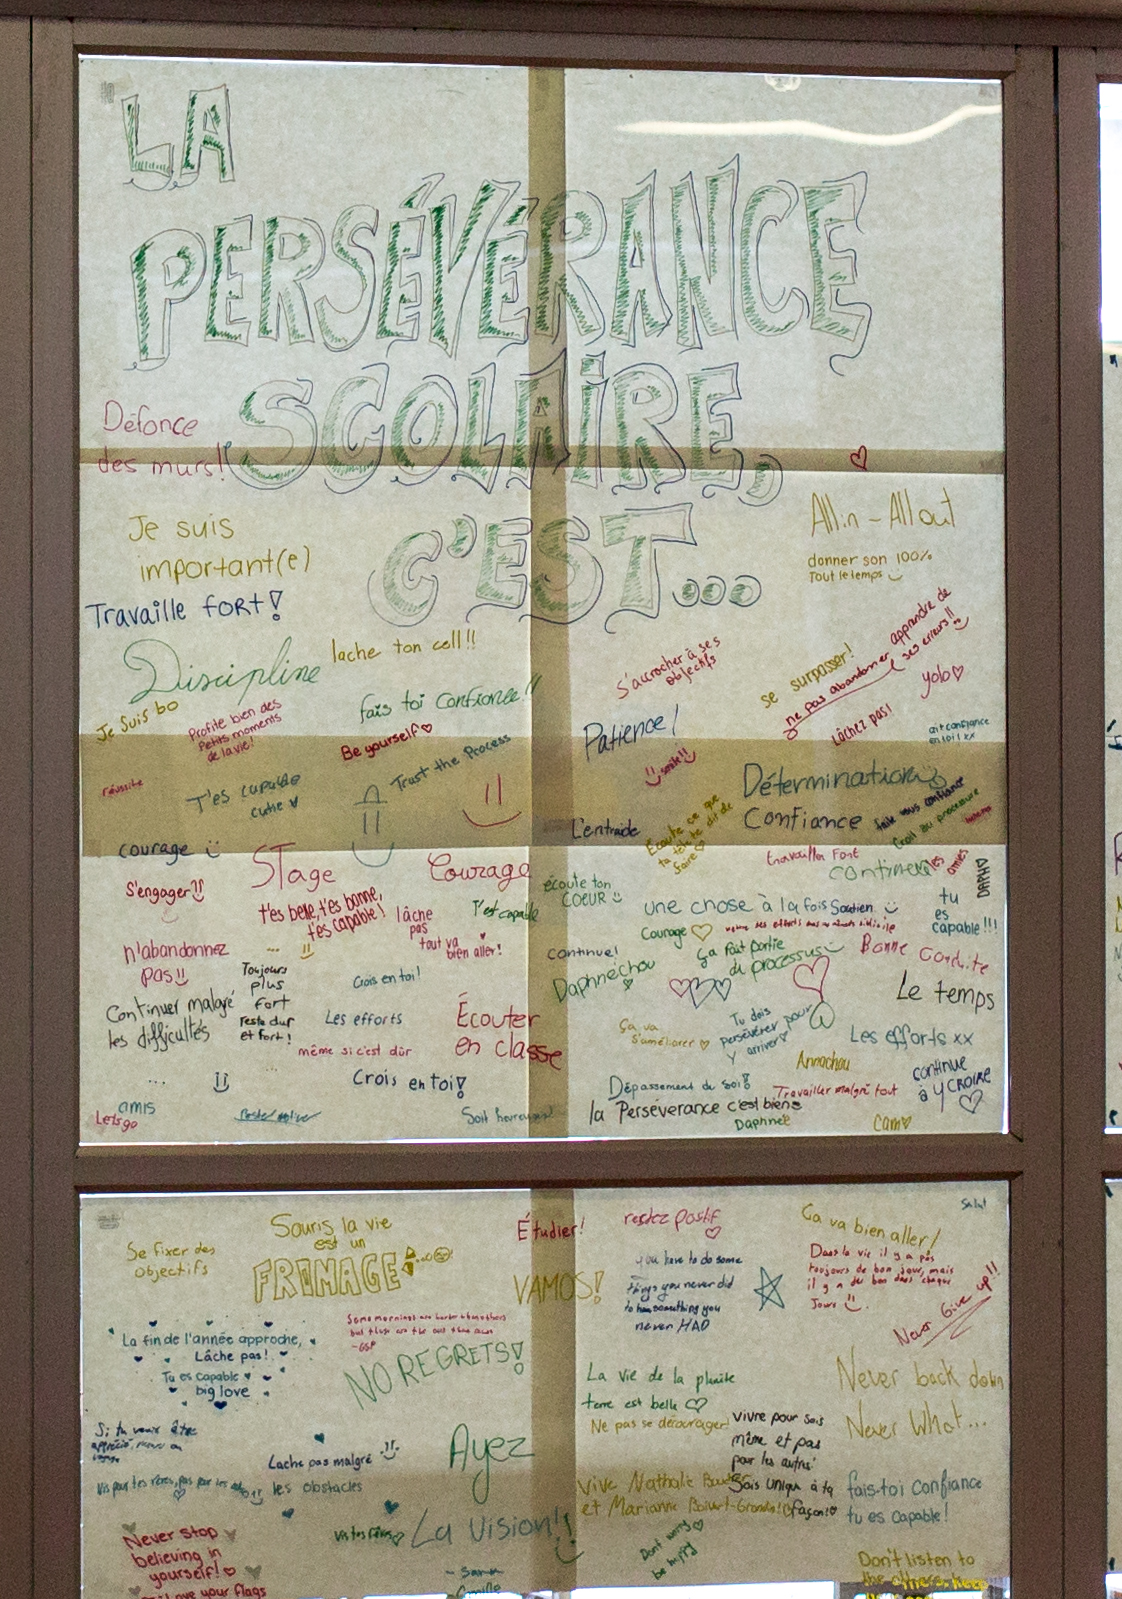 LA
PERSÉVÉRANCE
SCOLAIRE,
C'EST...
Défonce
des murs!
Je suis
important(e)
Travaille fort!
Discipline
lache ton cell!!
fais toi confience!!
Je suis bo
Profite bien des
Petits moments
de la vie!
Be yourself
Trust the Process
réussite
T'es capable
cutie
courage
All in - All out
donner son 100%
Tout le temps
S'accrocher à ses
objectifs
se surpasser!
ne pas abandonner
apprendre de
ses erreurs!!
yolo
lâchez pas!
Patience!
smile!!
ait confiance
en toi! xx
Détermination
Confiance
L'entraide
Écoute ce que
ta
dit de
faire
faite vous confiance
Croit au processus
STage
Courage
S'engager!!
t'es belle, t'es bonne,
t'es capable!
lâche
pas
T'es capable
tout va
bien aller!
n'abandonnez
pas!!
Toujours
plus
fort
reste dur
et fort!
Crois en toi!
Continuer malgré
les difficultés
Les efforts
Écouter
en classe
même si c'est dûr
...
Crois en toi!
amis
Let's go
Soit heureux
travailler Fort
continue
les amies
DAPH
écoute ton
COEUR
une chose à la fois
Soutien
tu
es
capable!!!
Courage
continue!
Ça fait partie
du processus
Bonne conduite
Daphnéchou
Le temps
Ça va
s'améliorer
Tu dois
persévérer pour
y arriver
Les efforts xx
Annachou
continue
à y CROIRE
Dépassement de soi!
Travailler malgré tout
la Persévérance c'est bien
Daphneé
Cam
Salut
Se fixer des
objectifs
Souris la vie
est un
FROMAGE
Étudier!
restez positif
Ça va bien aller!
VAMOS!
you have to do some
things you never did
to have something you
never HAD
Dans la vie il y a pas
toujours de bon jour, mais
il y a du bon dans chaque
Jours
Never Give up!!
La fin de l'année approche,
Lâche pas!
Tu es capable
big love
Some mornings are harder than others
but those are the
-GSP
NO REGRETS!
La vie de la planète
terre est belle
Ne pas se décourager!
vivre pour sois
même et pas
pour les autres
Sois unique à ta
façon!
Never back down
Never What...
Si tu veux être
apprécié,
Lache pas malgré
les obstacles
Ayez
La vision!!
Vis pour tes rêves, pas pour les
Vis tes rêves
Vive Nathalie
et Marianne Boivert-Grondin!
fais-toi confiance
tu es capable!
Never stop
believing in
yourself!
Love your flags
Don't worry
be happy
- Sara
- Camille
Don't listen to
the others, keep